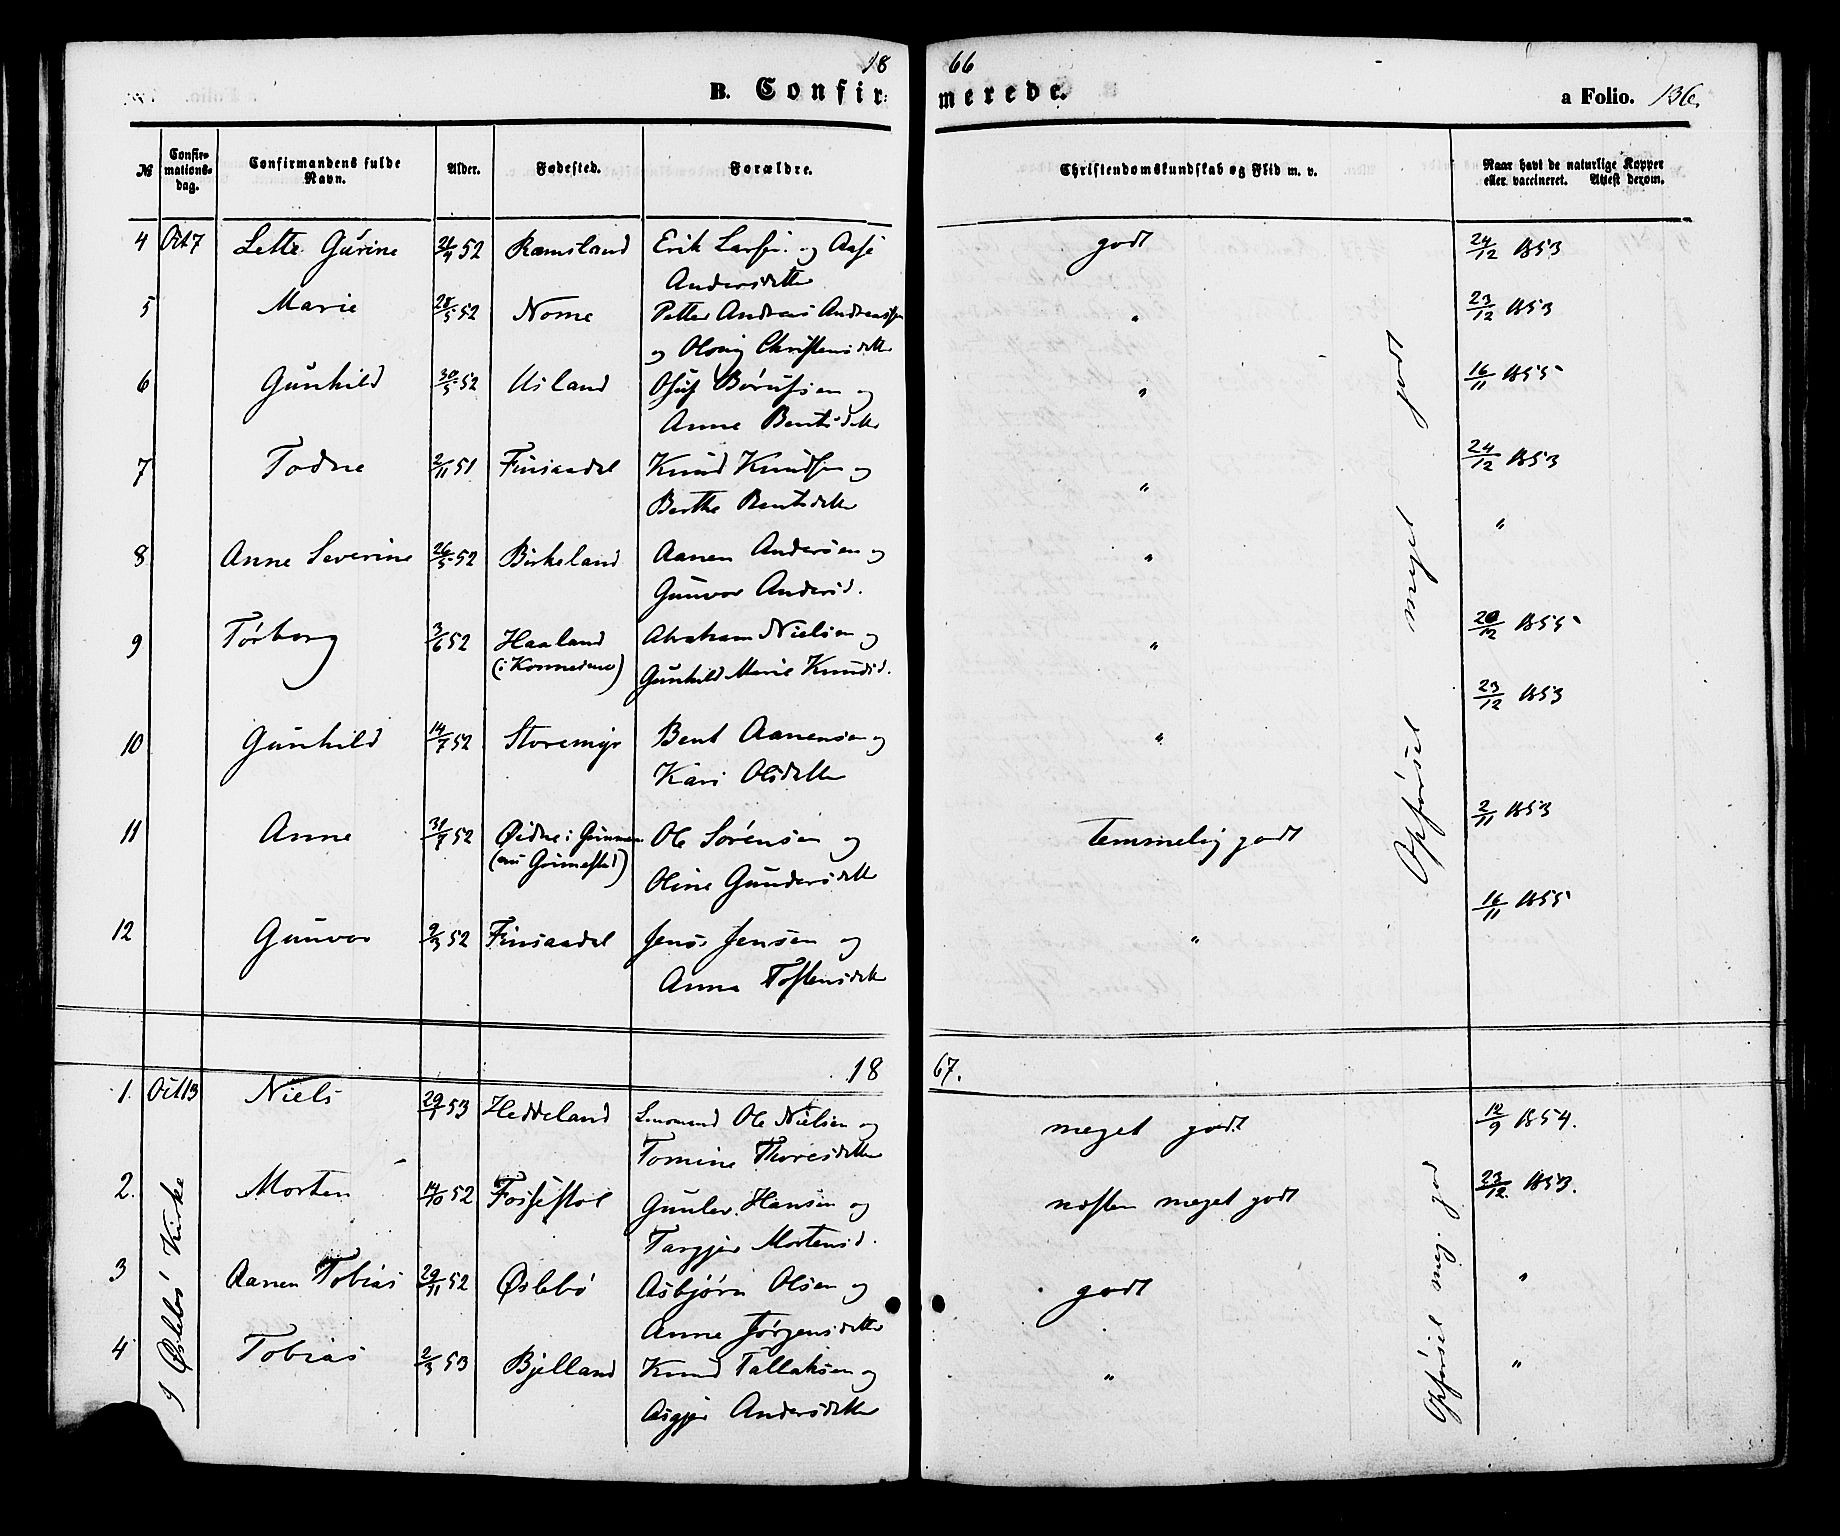 18 66
B. Confirmerede. a Folio. 136.
№ Confirmationsdag. Confirmandens fulde Navn. Alder. Fødested. Forældre. Christendomskundskab og Flid m. v. Naar havt de naturlige Kopper eller vaccineret. Attest derom.
4 Oct 7 Lette Gurine 21/4 52 Ramsland Erik Larsen og Aase godt 24/12 1853
Andersdatter
5 Marie 28/5 52 Nome Petter Andreas Andreassen " 23/12 1853
og Christensdatter
6 Gunhild 30/5 52 Usland Børufsen og " 16/11 1855
Anne Bentsdatter
7 Todne 2/11 51 Finsaadal Knud Knudsen og " 24/12 1853
Berthe Bentsdatter
8 Anne Severine 26/5 52 Birkeland Aanen Andersen og " "
Gunvor Andersd.
9 Tørborg 3/6 52 Haaland Abraham Nielsen og " 20/12 1855
(i Konnesmo) Gunhild Marie Knudsd.
10 Gunhild 14/7 52 Storemyr Bent Aanensen og " 23/12 1853
Kari Olsdatter
11 Anne 31/7 52 Øidne i Ole Sørensen og temmelig godt 2/11 1853
Oline Gundersdatter
12 Gunvor 9/3 52 Finsaadal Jens Jensen og " 16/11 1855
Anna Tostensdatter
Opførsel meget godt
18 67.
1. Oct 13 Niels 29/1 53 Heddeland Ole Nielsen og meget godt 12/9 1854.
Tomine Thoresdatter
2. Morten 14/10 52 Fossestøl Gunlev Hansen og næsten meget godt 23/12 1853.
Targjer Mortensd.
3 Aanen Tobias 29/11 52 Øslebø Asbjørn Olsen og godt "
Anne Jørgensdatter
4 Tobias 2/3 53 Bjelland Knud Tallaksen og " "
Asgjer Andersdatter
I Øslebø Kirke
Opførsel meg. god